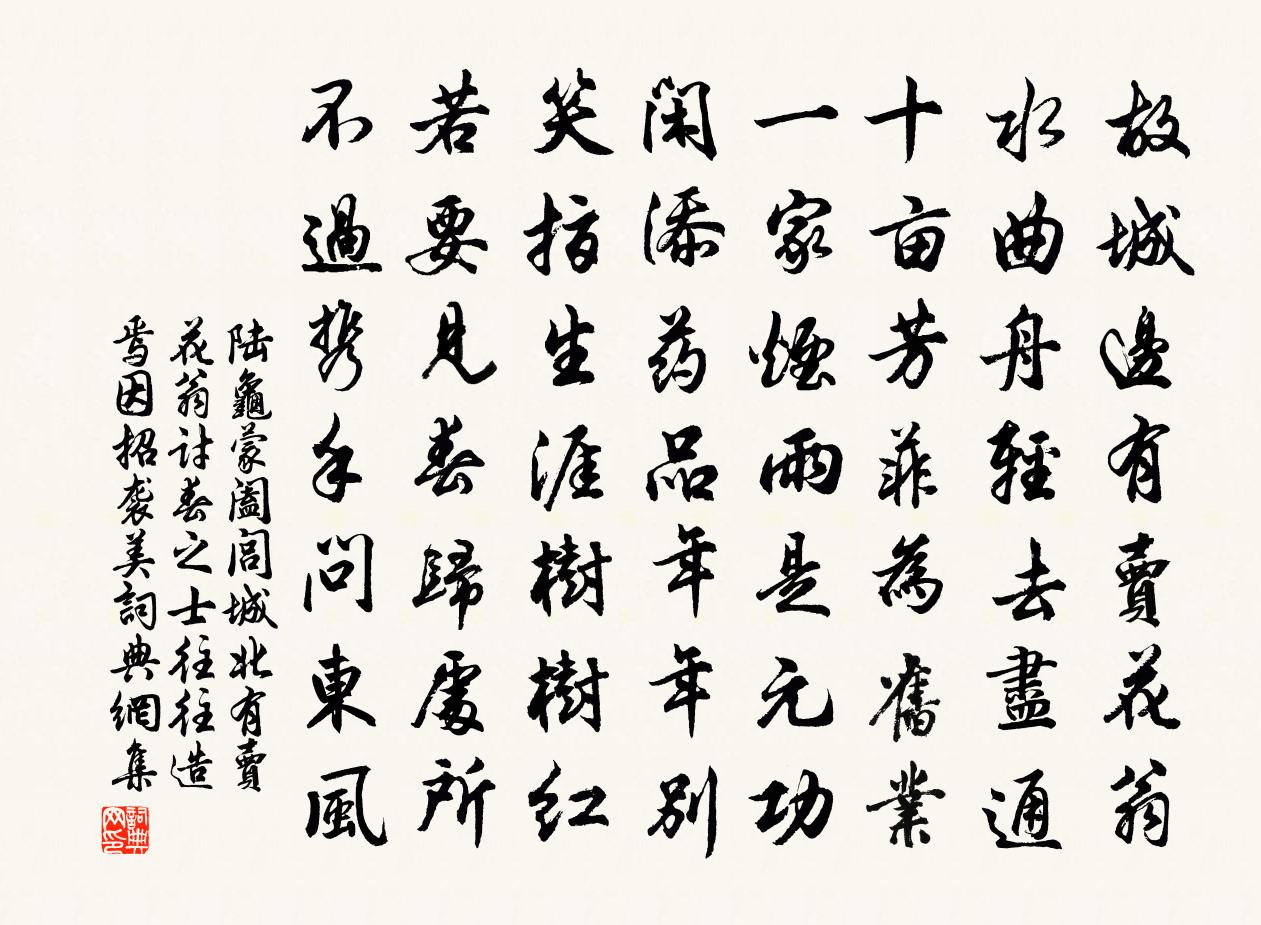 故城邊有賣花翁
水曲舟輕去盡通
十亩芳菲為舊業
一家煙雨是元功
閑添药品年年别
笑指生涯樹樹红
若要見春歸處所
不過携手問東風
陆龜蒙阖閭城北有賣
花翁討春之士往往造
焉因招袭美詞典網集
詞典网印